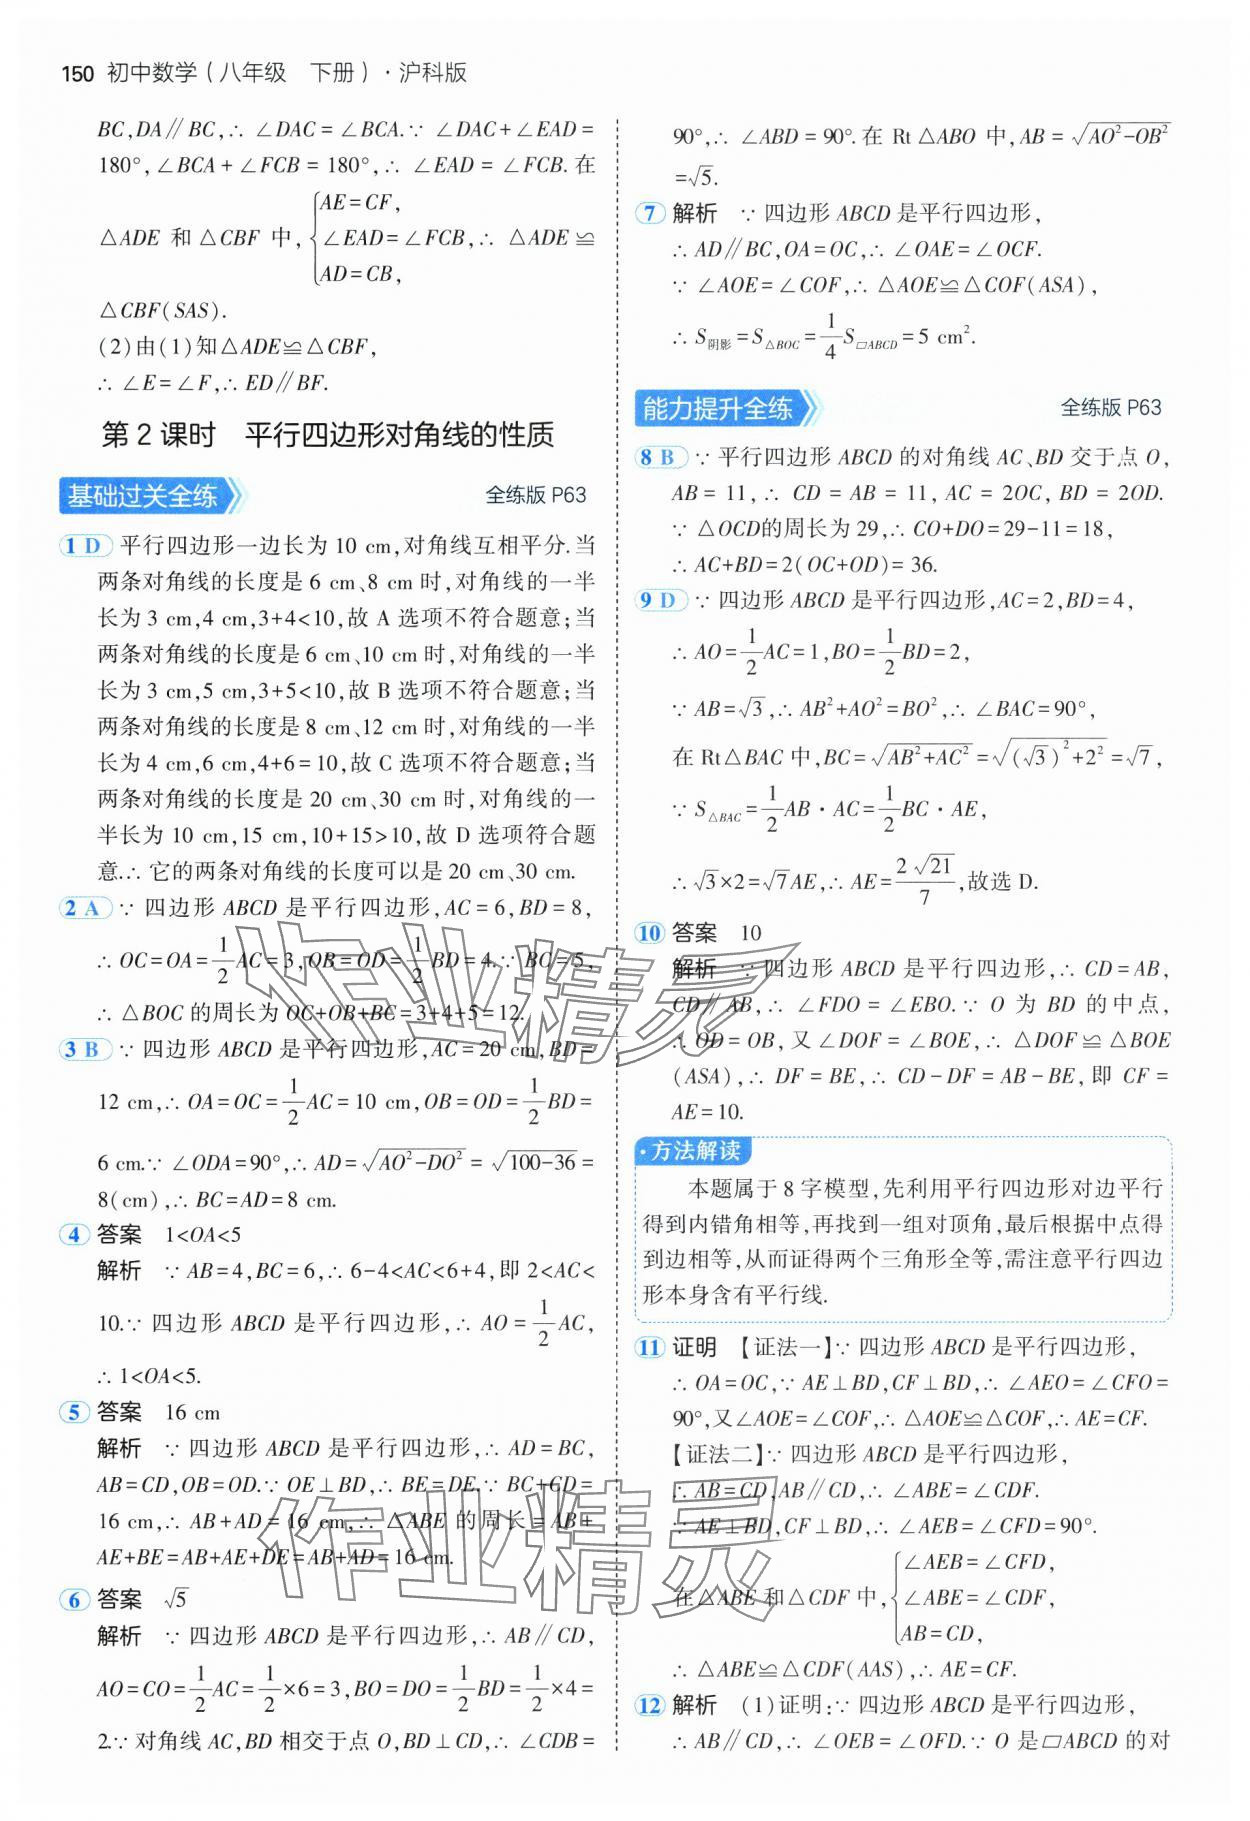 150 初中数学(八年级 下册)·沪科版
BC,DA∥BC,∴ ∠DAC=∠BCA.∵ ∠DAC+∠EAD=
180°,∠BCA+∠FCB=180°,∴ ∠EAD=∠FCB.在
△ADE 和△CBF 中,{AE=CF,
∠EAD=∠FCB,∴ △ADE≌
AD=CB,
△CBF(SAS).
(2)由(1)知△ADE≌△CBF,
∴ ∠E=∠F,∴ ED∥BF.
第2课时 平行四边形对角线的性质
基础过关全练 全练版 P63
1 D 平行四边形一边长为 10 cm,对角线互相平分.当
两条对角线的长度是 6 cm、8 cm 时,对角线的一半
长为 3 cm,4 cm,3+4<10,故 A 选项不符合题意;当
两条对角线的长度是 6 cm、10 cm 时,对角线的一半
长为 3 cm,5 cm,3+5<10,故 B 选项不符合题意;当
两条对角线的长度是 8 cm、12 cm 时,对角线的一半
长为 4 cm,6 cm,4+6=10,故 C 选项不符合题意;当
两条对角线的长度是 20 cm、30 cm 时,对角线的一
半长为 10 cm,15 cm,10+15>10,故 D 选项符合题
意.∴ 它的两条对角线的长度可以是 20 cm、30 cm.
2 A ∵ 四边形 ABCD 是平行四边形,AC=6,BD=8,
∴ OC=OA=1/2AC=3,OB=OD=1/2BD=4.∵ BC=5,
∴ △BOC 的周长为 OC+OB+BC=3+4+5=12.
3 B ∵ 四边形 ABCD 是平行四边形,AC=20 cm,BD=
12 cm,∴ OA=OC=1/2AC=10 cm,OB=OD=1/2BD=
6 cm.∵ ∠ODA=90°,∴ AD=√(AO²-DO²)=√(100-36)=
8(cm),∴ BC=AD=8 cm.
4 答案 1<OA<5
解析 ∵ AB=4,BC=6,∴ 6-4<AC<6+4,即 2<AC<
10.∵ 四边形 ABCD 是平行四边形,∴ AO=1/2AC,
∴ 1<OA<5.
5 答案 16 cm
解析 ∵ 四边形 ABCD 是平行四边形,∴ AD=BC,
AB=CD,OB=OD.∵ OE⊥BD,∴ BE=DE.∵ BC+CD=
16 cm,∴ AB+AD=16 cm,∴ △ABE 的周长=AB+
AE+BE=AB+AE+DE=AB+AD=16 cm.
6 答案 √5
解析 ∵ 四边形 ABCD 是平行四边形,∴ AB∥CD,
AO=CO=1/2AC=1/2×6=3,BO=DO=1/2BD=1/2×4=
2.∵ 对角线 AC,BD 相交于点 O,BD⊥CD,∴ ∠CDB=
90°,∴ ∠ABD=90°.在 Rt△ABO 中,AB=√(AO²-OB²)
=√5.
7 解析 ∵ 四边形 ABCD 是平行四边形,
∴ AD∥BC,OA=OC,∴ ∠OAE=∠OCF.
∵ ∠AOE=∠COF,∴ △AOE≌△COF(ASA),
∴ S阴影=S△BOC=1/4S▱ABCD=5 cm².
能力提升全练 全练版 P63
8 B ∵ 平行四边形 ABCD 的对角线 AC、BD 交于点 O,
AB=11,∴ CD=AB=11,AC=2OC,BD=2OD.
∵ △OCD的周长为 29,∴ CO+DO=29-11=18,
∴ AC+BD=2(OC+OD)=36.
9 D ∵ 四边形 ABCD 是平行四边形,AC=2,BD=4,
∴ AO=1/2AC=1,BO=1/2BD=2,
∵ AB=√3,∴ AB²+AO²=BO²,∴ ∠BAC=90°,
在 Rt△BAC 中,BC=√(AB²+AC²)=√((√3)²+2²)=√7,
∵ S△BAC=1/2AB·AC=1/2BC·AE,
∴ √3×2=√7AE,∴ AE=2√21/7,故选 D.
10 答案 10
解析 ∵ 四边形 ABCD 是平行四边形,∴ CD=AB,
CD∥AB,∴ ∠FDO=∠EBO.∵ O 为 BD 的中点,
∴ OD=OB,又∠DOF=∠BOE,∴ △DOF≌△BOE
(ASA),∴ DF=BE,∴ CD-DF=AB-BE,即 CF=
AE=10.
·方法解读
本题属于 8 字模型,先利用平行四边形对边平行
得到内错角相等,再找到一组对顶角,最后根据中点得
到边相等,从而证得两个三角形全等,需注意平行四边
形本身含有平行线.
11 证明 【证法一】∵ 四边形 ABCD 是平行四边形,
∴ OA=OC,∵ AE⊥BD,CF⊥BD,∴ ∠AEO=∠CFO=
90°,又∠AOE=∠COF,∴ △AOE≌△COF,∴ AE=CF.
【证法二】∵ 四边形 ABCD 是平行四边形,
∴ AB=CD,AB∥CD,∴ ∠ABE=∠CDF.
∵ AE⊥BD,CF⊥BD,∴ ∠AEB=∠CFD=90°.
在△ABE 和△CDF 中,{∠AEB=∠CFD,
∠ABE=∠CDF,
AB=CD,
∴ △ABE≌△CDF(AAS),∴ AE=CF.
12 解析 (1)证明:∵ 四边形 ABCD 是平行四边形,
∴ AB∥CD,∴ ∠OEB=∠OFD.∵ O 是▱ABCD 的对
作业精灵
作业精灵